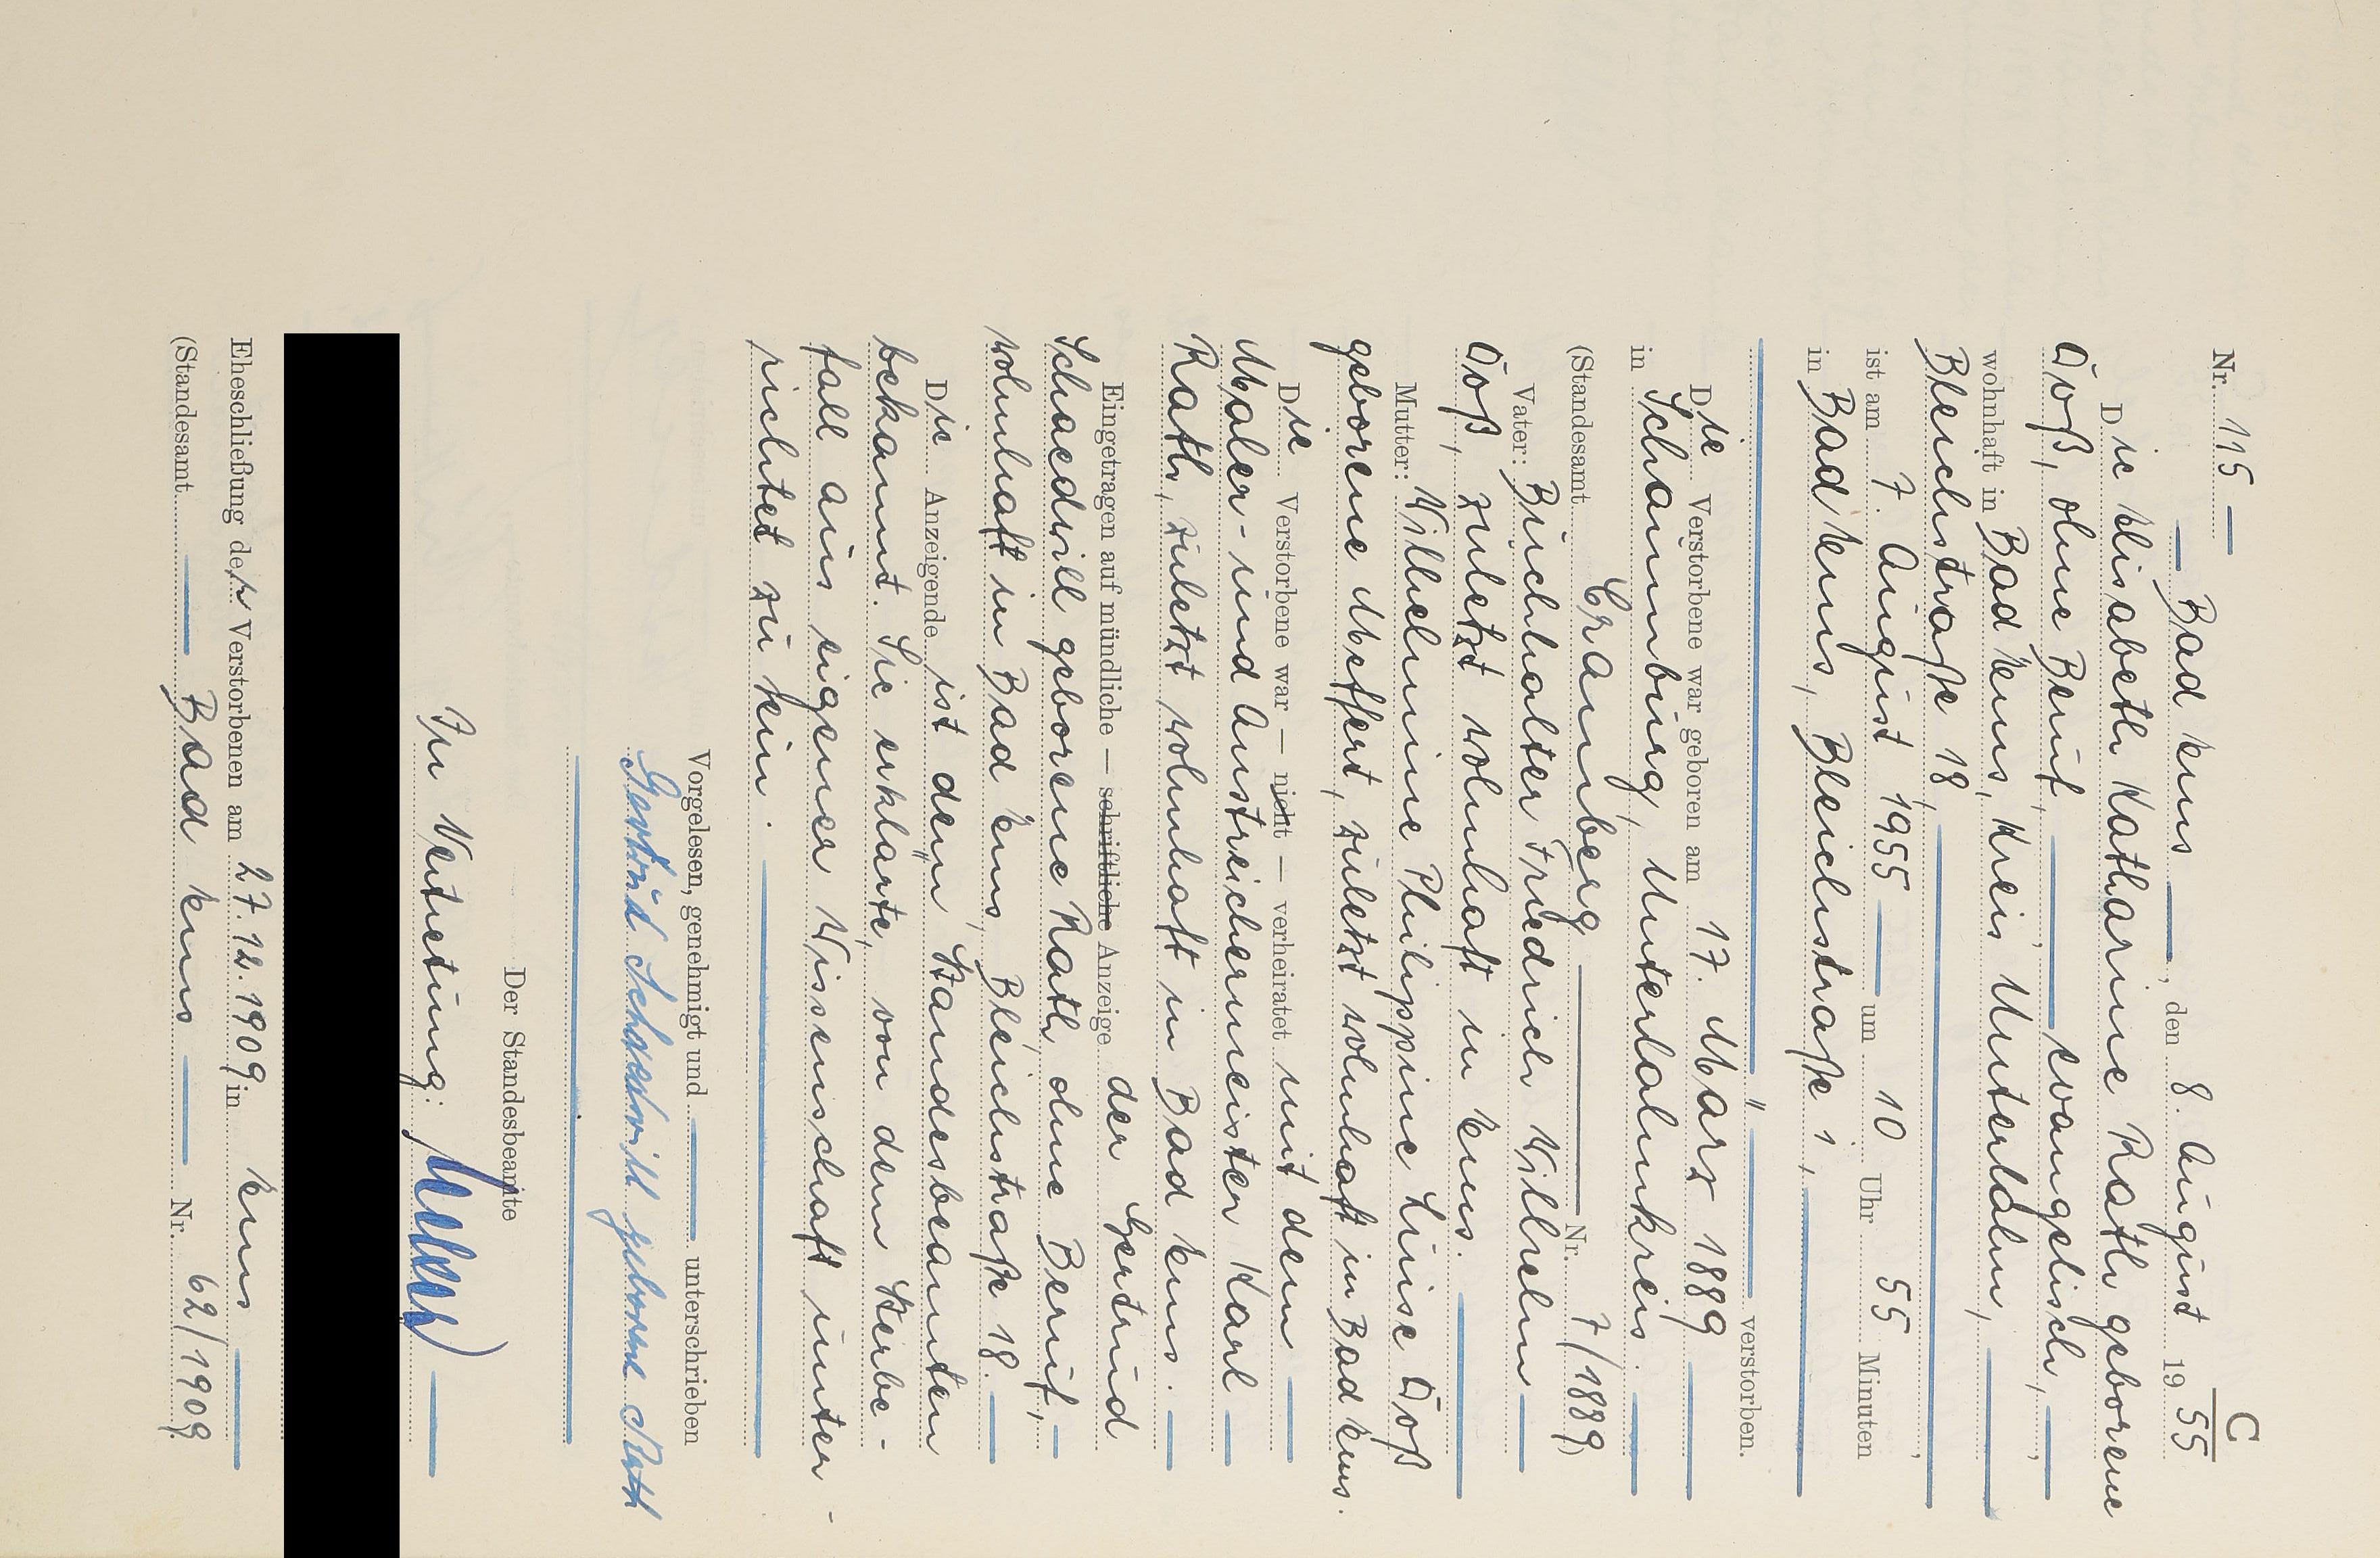 C
Nr. 115 —
— Bad Ems —, den 8. August 1955
Die Elisabeth Katharine Rath geborene
Voß, ohne Beruf, — evangelisch, —
wohnhaft in Bad Ems, Kreis Unterlahn, —
Bleichstraße 18, —
ist am 7. August 1955 — um 10 Uhr 55 Minuten
in Bad Ems, Bleichstraße 1, —
— " — verstorben.
Die Verstorbene war geboren am 17. März 1889 —
in Schaumburg, Unterlahnkreis. —
(Standesamt Cramberg — Nr. 7/1889)
Vater: Buchhalter Friedrich Wilhelm —
Voß, zuletzt wohnhaft in Ems. —
Mutter: Wilhelmine Philippine Luise Voß
geborene Meffert, zuletzt wohnhaft in Bad Ems.
Die Verstorbene war — nicht — verheiratet mit dem —
Maler- und Anstreichermeister Karl —
Rath, zuletzt wohnhaft in Bad Ems. —
Eingetragen auf mündliche — schriftliche Anzeige der Gertrud
Schaedwill geborene Rath, ohne Beruf, —
wohnhaft in Bad Ems, Bleichstraße 18. —
Die Anzeigende ist dem Standesbeamten
bekannt. Sie erklärte, von dem Sterbe-
fall aus eigener Wissenschaft unter-
richtet zu sein. —
Vorgelesen, genehmigt und — unterschrieben
Gertrud Schaedwill geborene Rath
Der Standesbeamte
In Vertretung:
Eheschließung der Verstorbenen am 27.12.1909 in Ems —
(Standesamt — Bad Ems — Nr. 62/1909)